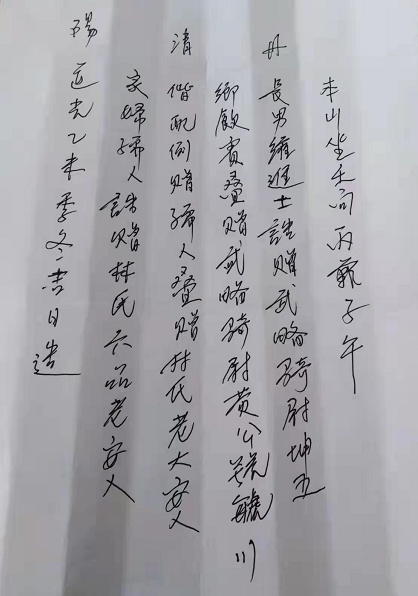 本山坐壬向丙兼子午
丹 長男維進士誥赠武略骑尉坤五
鄉飲賓叠赠武略骑尉黄公川
清 偕配例赠孺人叠赠林氏老大安人
家婦孺人誥赠林氏六品老安人
陽 道光乙未季冬吉日造